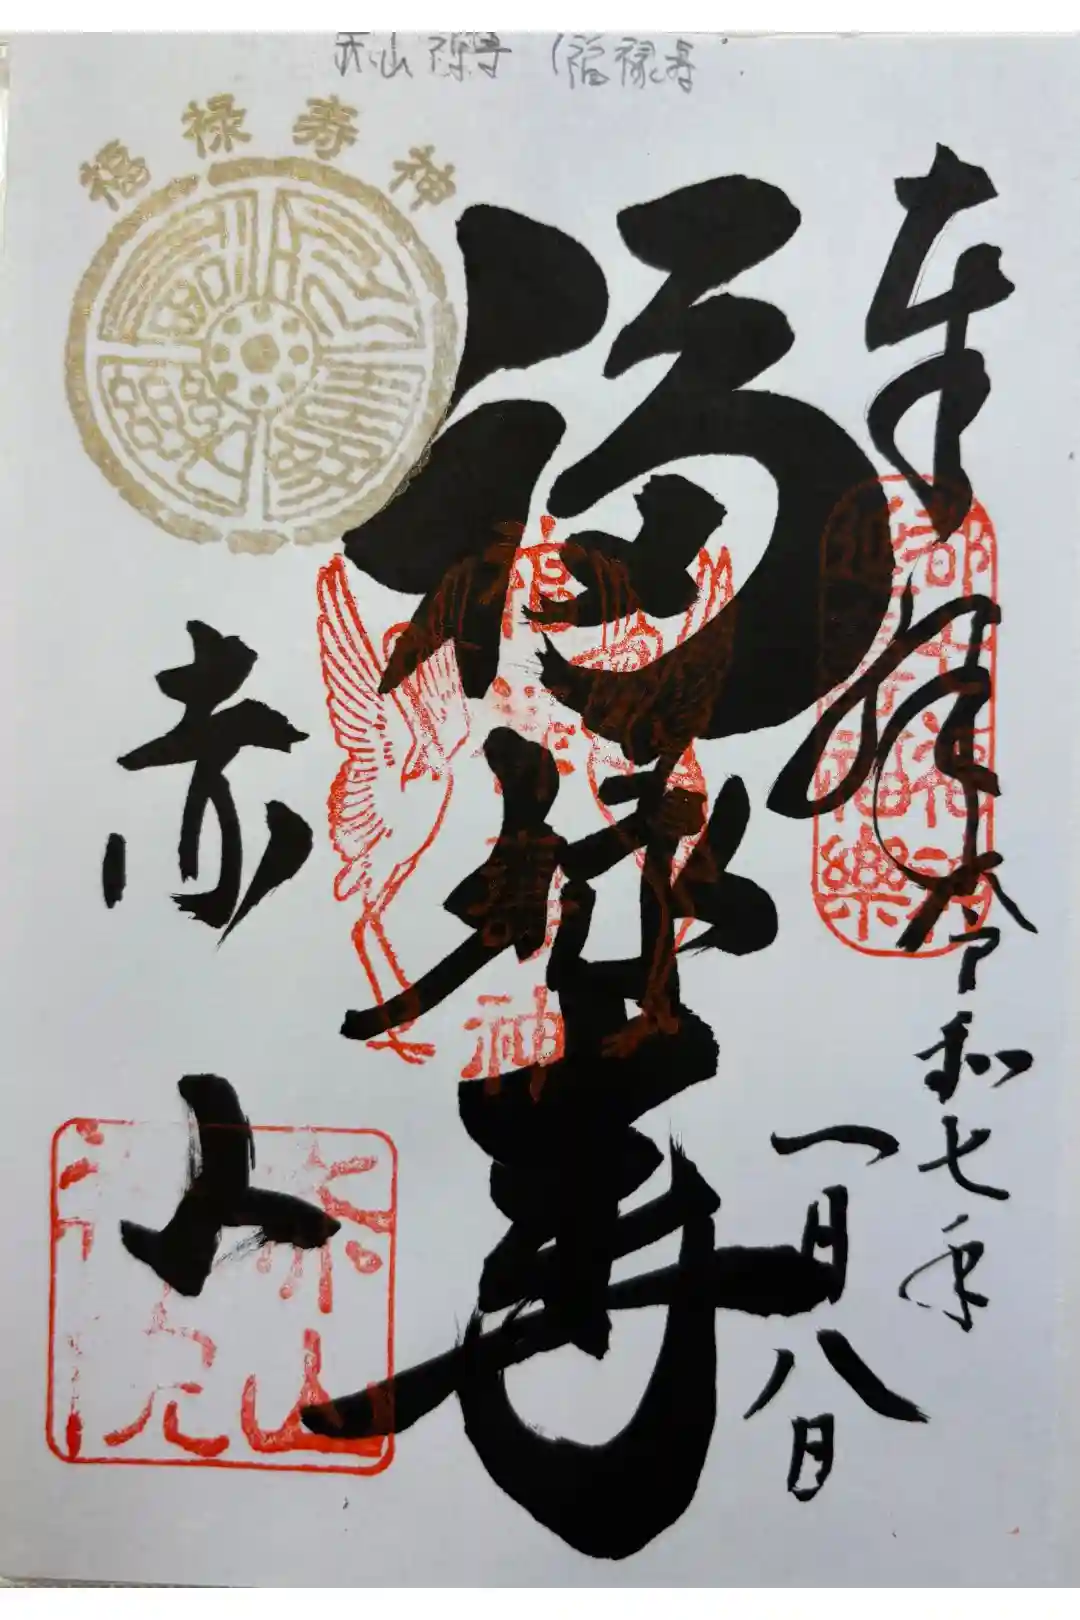 赤山禅寺（福禄寿
奉拝
令和七年
一月八日
福禄寿
赤山
福禄寿神
福禄寿神
赤山